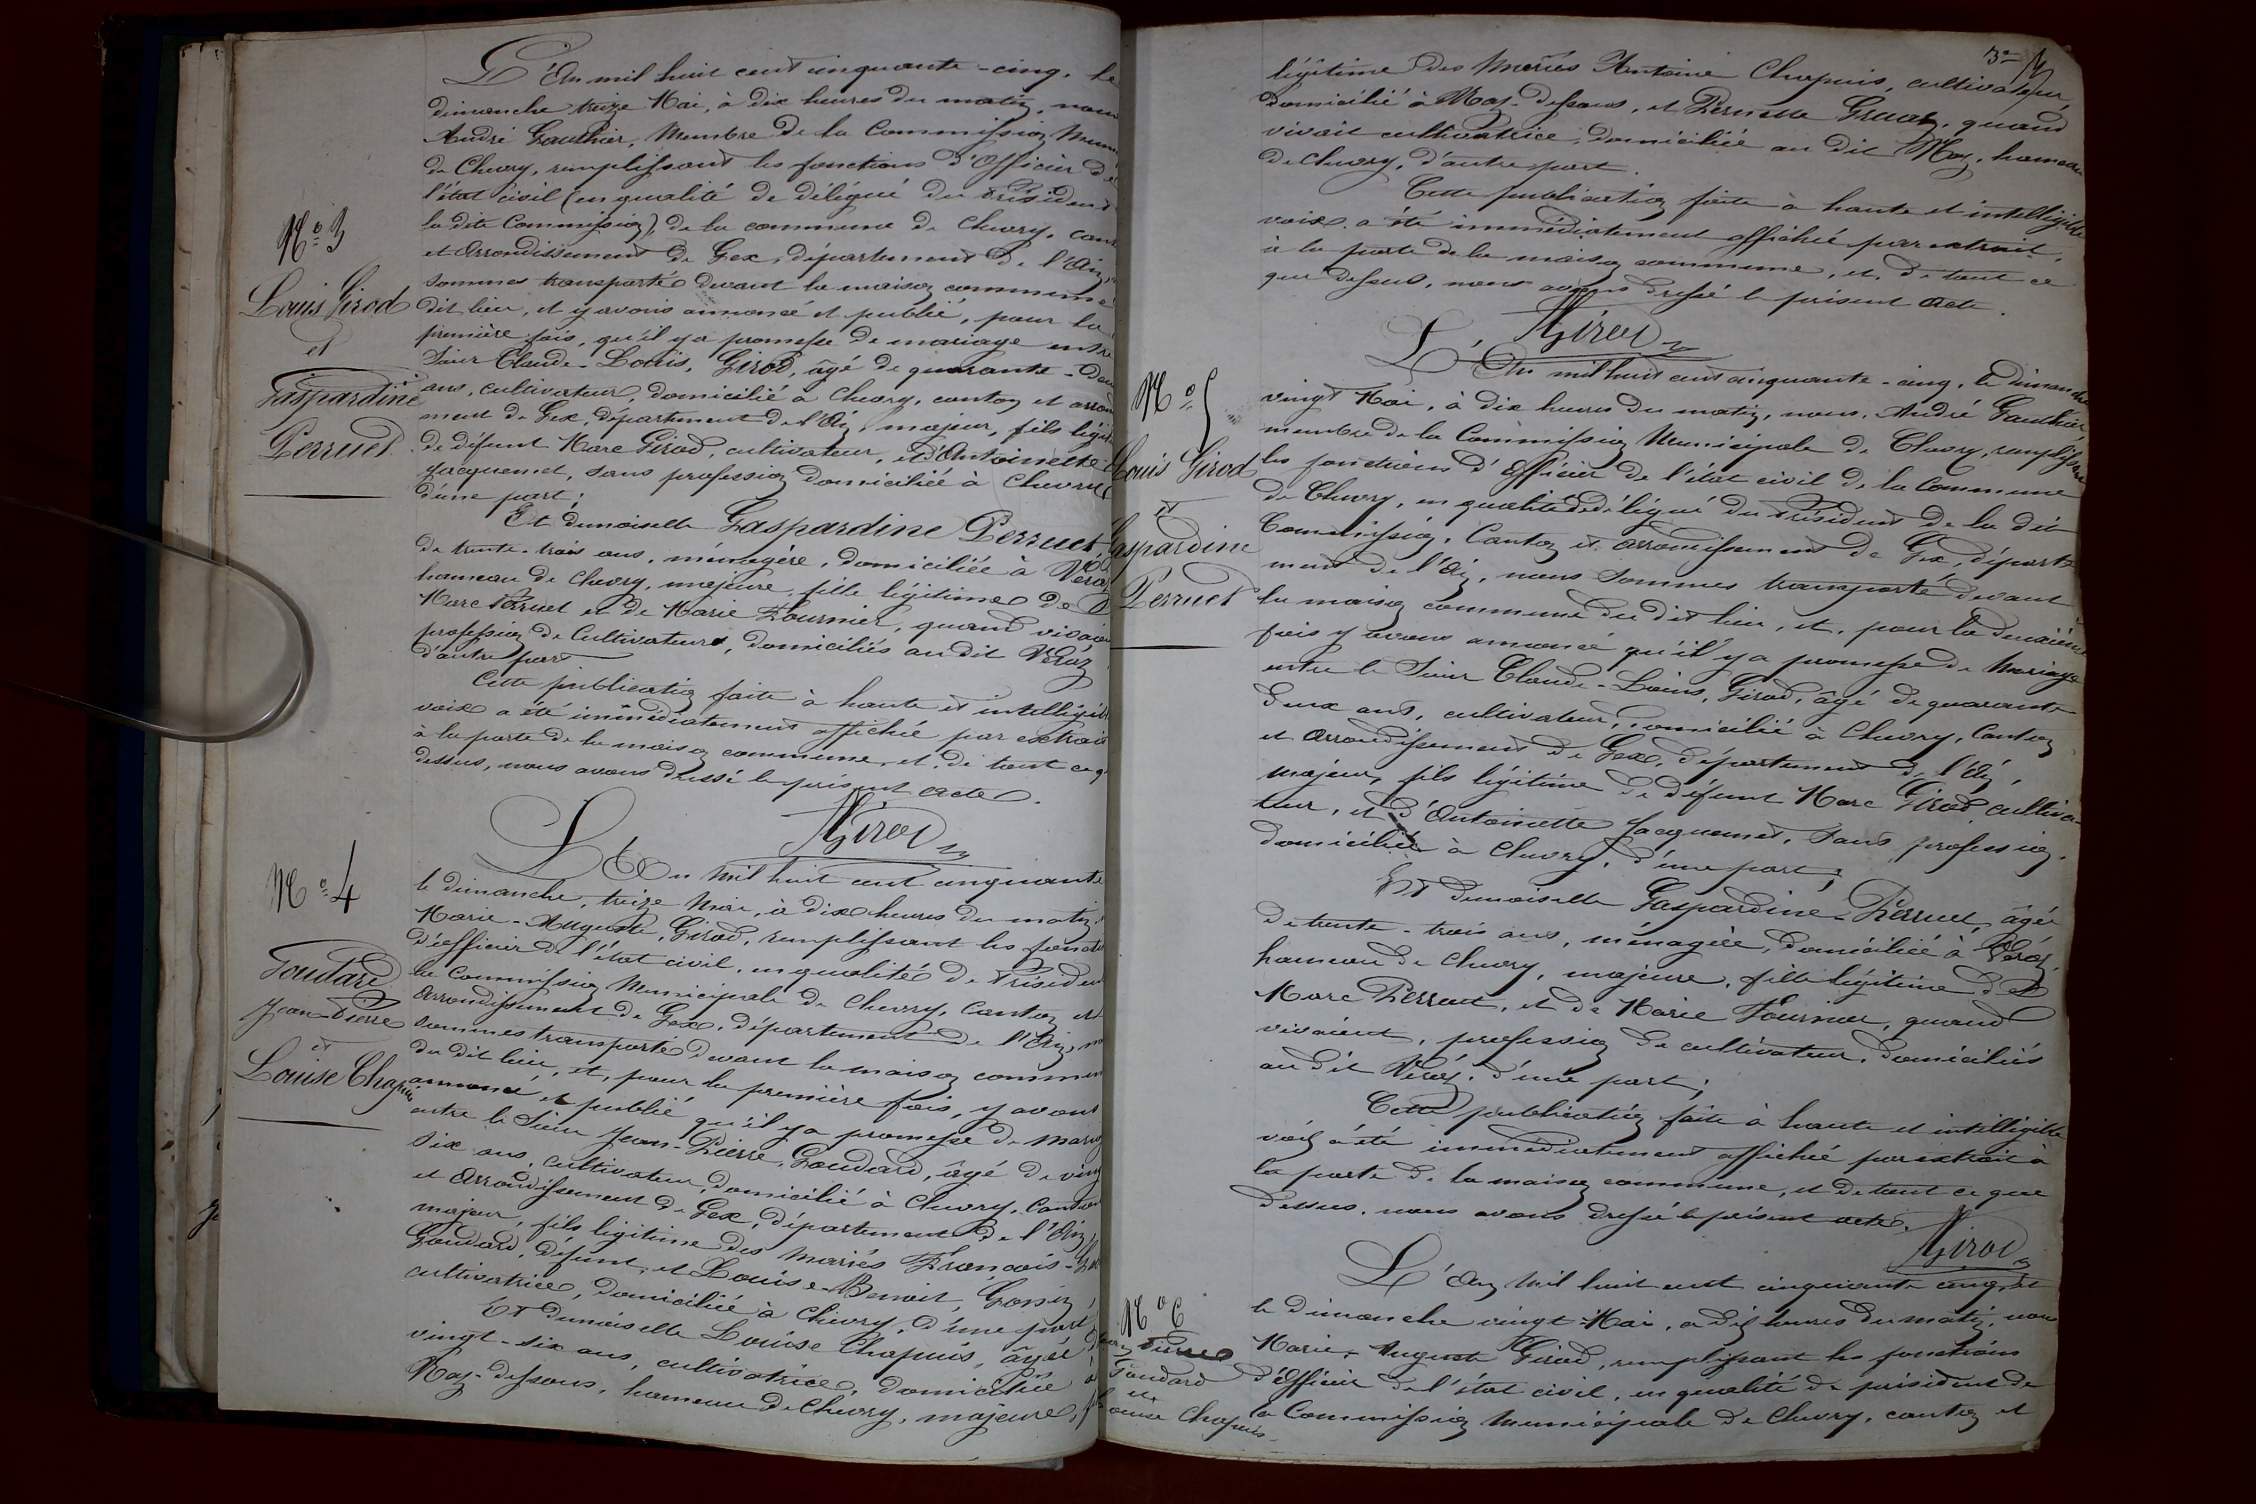 L'An mil huit cent cinquante-cinq, le
dimanche treize Mai, à dix heures du matin, nous
André Gauthier, Membre de la Commission Muni
de Chevry, remplissant les fonctions d'Officier de
l'état civil (en qualité de délégué du Président
la dite Commission), de la commune de Chevry, can
et Arrondissement de Gex, département de l'Ain,
sommes transporté devant la maison commune
dit lieu, et y avons annoncé et publié, pour la
première fois, qu'il y a promesse de mariage entre
Sieur Claude-Louis, Girod, âgé de quarante-deux
ans, cultivateur, domicilié à Chevry, canton et arron
ment de Gex, département de l'Ain, majeur, fils légit
de défunt Marc Girod, cultivateur, et d'Antoinette
Jacquemet, sans profession domiciliée à Chevry
d'une part;
Et demoiselle Gaspardine Perruet,
de trente-trois ans, ménagère, domiciliée à Véraz
hameau de Chevry, majeure, fille légitime de
Marc Perruet et de Marie Fournier, quand vivaient
profession de Cultivateurs, domiciliés au dit Véraz
d'autre part
Cette publication faite à haute et intelligible
voix a été immédiatement affichée par extrait
à la porte de la maison commune, et, de tout ce q
dessus, nous avons dressé le présent acte.
AGirod
No 3
Louis Girod
et
Gaspardine
Perruet
L'An mil huit cent cinquante
le dimanche, treize Mai, à dix heures du matin,
Marie-Auguste, Girod, remplissant les fonctio
d'officier de l'état civil, en qualité de Président
la Commission Municipale de Chevry, Canton et
Arrondissement de Gex, département de l'Ain, n
sommes transporté devant la maison commun
du dit lieu, et, pour la première fois, y avons
annoncé et publié qu'il y a promesse de maria
entre le Sieur Jean-Pierre, Goudard, âgé de ving
six ans, cultivateur, domicilié à Chevry, Canton
et Arrondissement de Gex, département de l'Ain,
majeur, fils légitime des mariés François-
Goudard, défunt, et Louise-Benoit, Gonin,
cultivatrice, domiciliée à Chevry, d'une part,
Et Demoiselle Louise Chapuis, âgée d
vingt-six ans, cultivatrice, domiciliée à
Naz-dessous, hameau de Chevry, majeure, f
No 4
Goudard
Jean-Pierre
et
Louise Chapuis
3e
légitime des Mariés Antoine Chapuis, cultivateur,
domicilié à Naz-dessous, et Pernette Gruaz, quand
vivait cultivatrice, domiciliée au dit Naz, hameau
de Chevry, d'autre part.
Cette publication faite à haute et intelligible
voix a été immédiatement affichée par extrait,
à la porte de la maison commune, et, de tout ce
que dessus, nous avons dressé le présent acte.
AGirod
L'An mil huit cent cinquante-cinq, le dimanche
vingt Mai, à dix heures du matin, nous, André Gauthier,
membre de la Commission Municipale de Chevry, remplissant
les fonctions d'Officier de l'état civil de la Commune
de Chevry, en qualité de délégué du Président de la dit
Commission, Canton et arrondissement de Gex, départe
ment de l'Ain, nous sommes transporté devant
la maison commune du dit lieu, et, pour la deuxième
fois y avons annoncé qu'il y a promesse de Mariage
entre le Sieur Claude-Louis, Girod, âgé de quarante
deux ans, cultivateur, domicilié à Chevry, Canton
et Arrondissement de Gex, département de l'Ain,
majeur, fils légitime de défunt Marc Girod, cultiva-
teur, et d'Antoinette Jacquemet, sans profession,
domiciliée à Chevry, d'une part;
Et demoiselle Gaspardine-Perruet, âgée
de trente-trois ans, ménagère, domiciliée à Véraz,
hameau de Chevry, majeure, fille légitime de
Marc Perruet, et de Marie Fournier, quand
vivaient, profession de cultivateur, domiciliés
au dit Véraz, d'une part;
Cette publication faite à haute et intelligible
voix a été immédiatement affichée par extrait à
la porte de la maison commune, et de tout ce que
dessus, nous avons dressé le présent acte.
AGirod
No 5
Louis Girod
et
Gaspardine
Perruet
L'An mil huit cent cinquante cinq, et
le dimanche vingt Mai, à dix heures du matin, nous
Marie-Auguste Girod, remplissant les fonctions
d'Officier de l'état civil, en qualité de président de
la Commission Municipale de Chevry, canton et
No 6
Jean Pierre
Goudard
et
Louise Chapuis